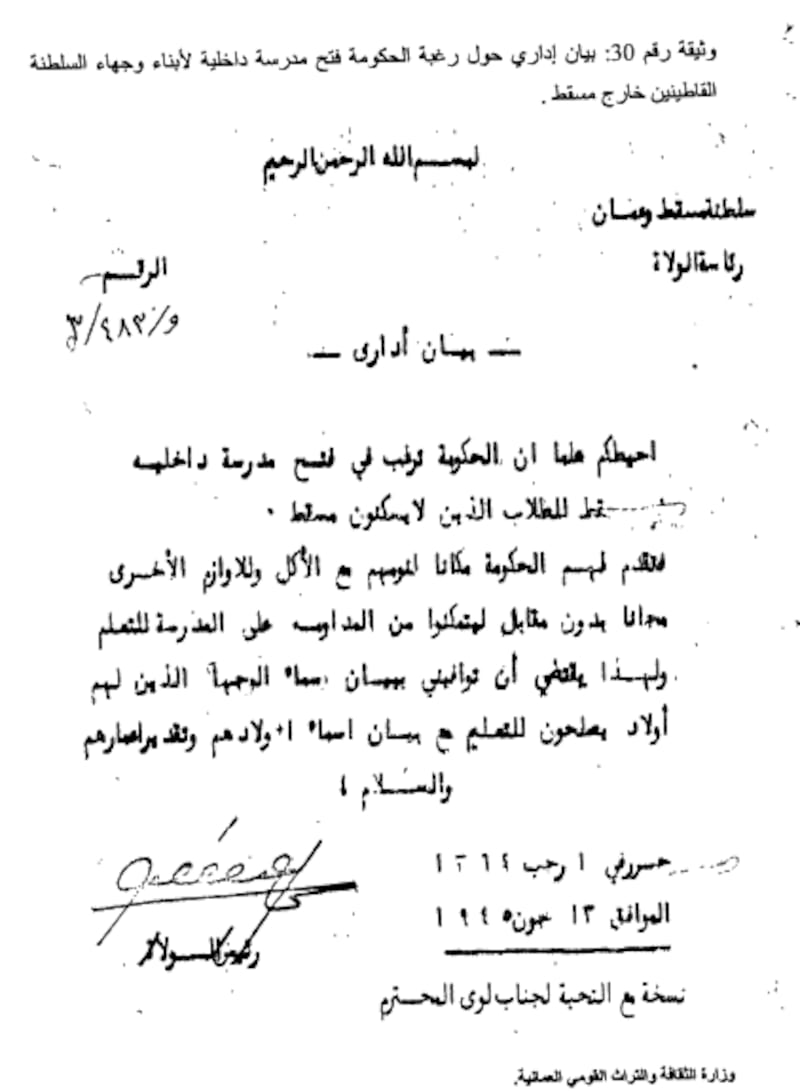 وثيقة رقم 30: بيان إداري حول رغبة الحكومة فتح مدرسة داخلية لأبناء وجهاء السلطنة
القاطنين خارج مسقط .
بسم الله الرحمن الرحيم
سلطنة مسقط وعمان
رئاسة الولاة
الرقم
و/٤٨٣/٣
— بيان أدارى —
احيطكم علما ان الحكومة ترغب في فتح مدرسة داخليه
للطلاب الذين لا يسكنون مسقط .
فتقدم لهم الحكومة مكانا لنومهم مع الأكل وللاوازم الأخرى
مجانا بدون مقابل ليتمكنوا من المداومه على المدرسة للتعلم
ولهذا يقتضي أن توافيني ببيان اسماء الوجهاء الذين لهم
أولاد يصلحون للتعليم مع بيان اسماء اولادهم وتقدير اعمارهم
والسلام ،
حرر في ١ رجب ١٣٦٤
الموافق ١٣ جون ١٩٤٥
رئيس الولاة
نسخة مع التحية لجناب لوى المحترم
وزارة الثقافة والتراث القومي العمانية.